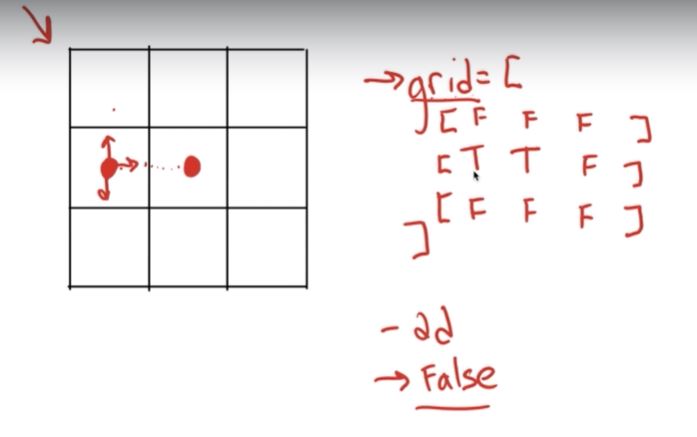 → grid = [
[ F F F ]
[ T T F ]
[ F F F ]
]
- 2d
→ False